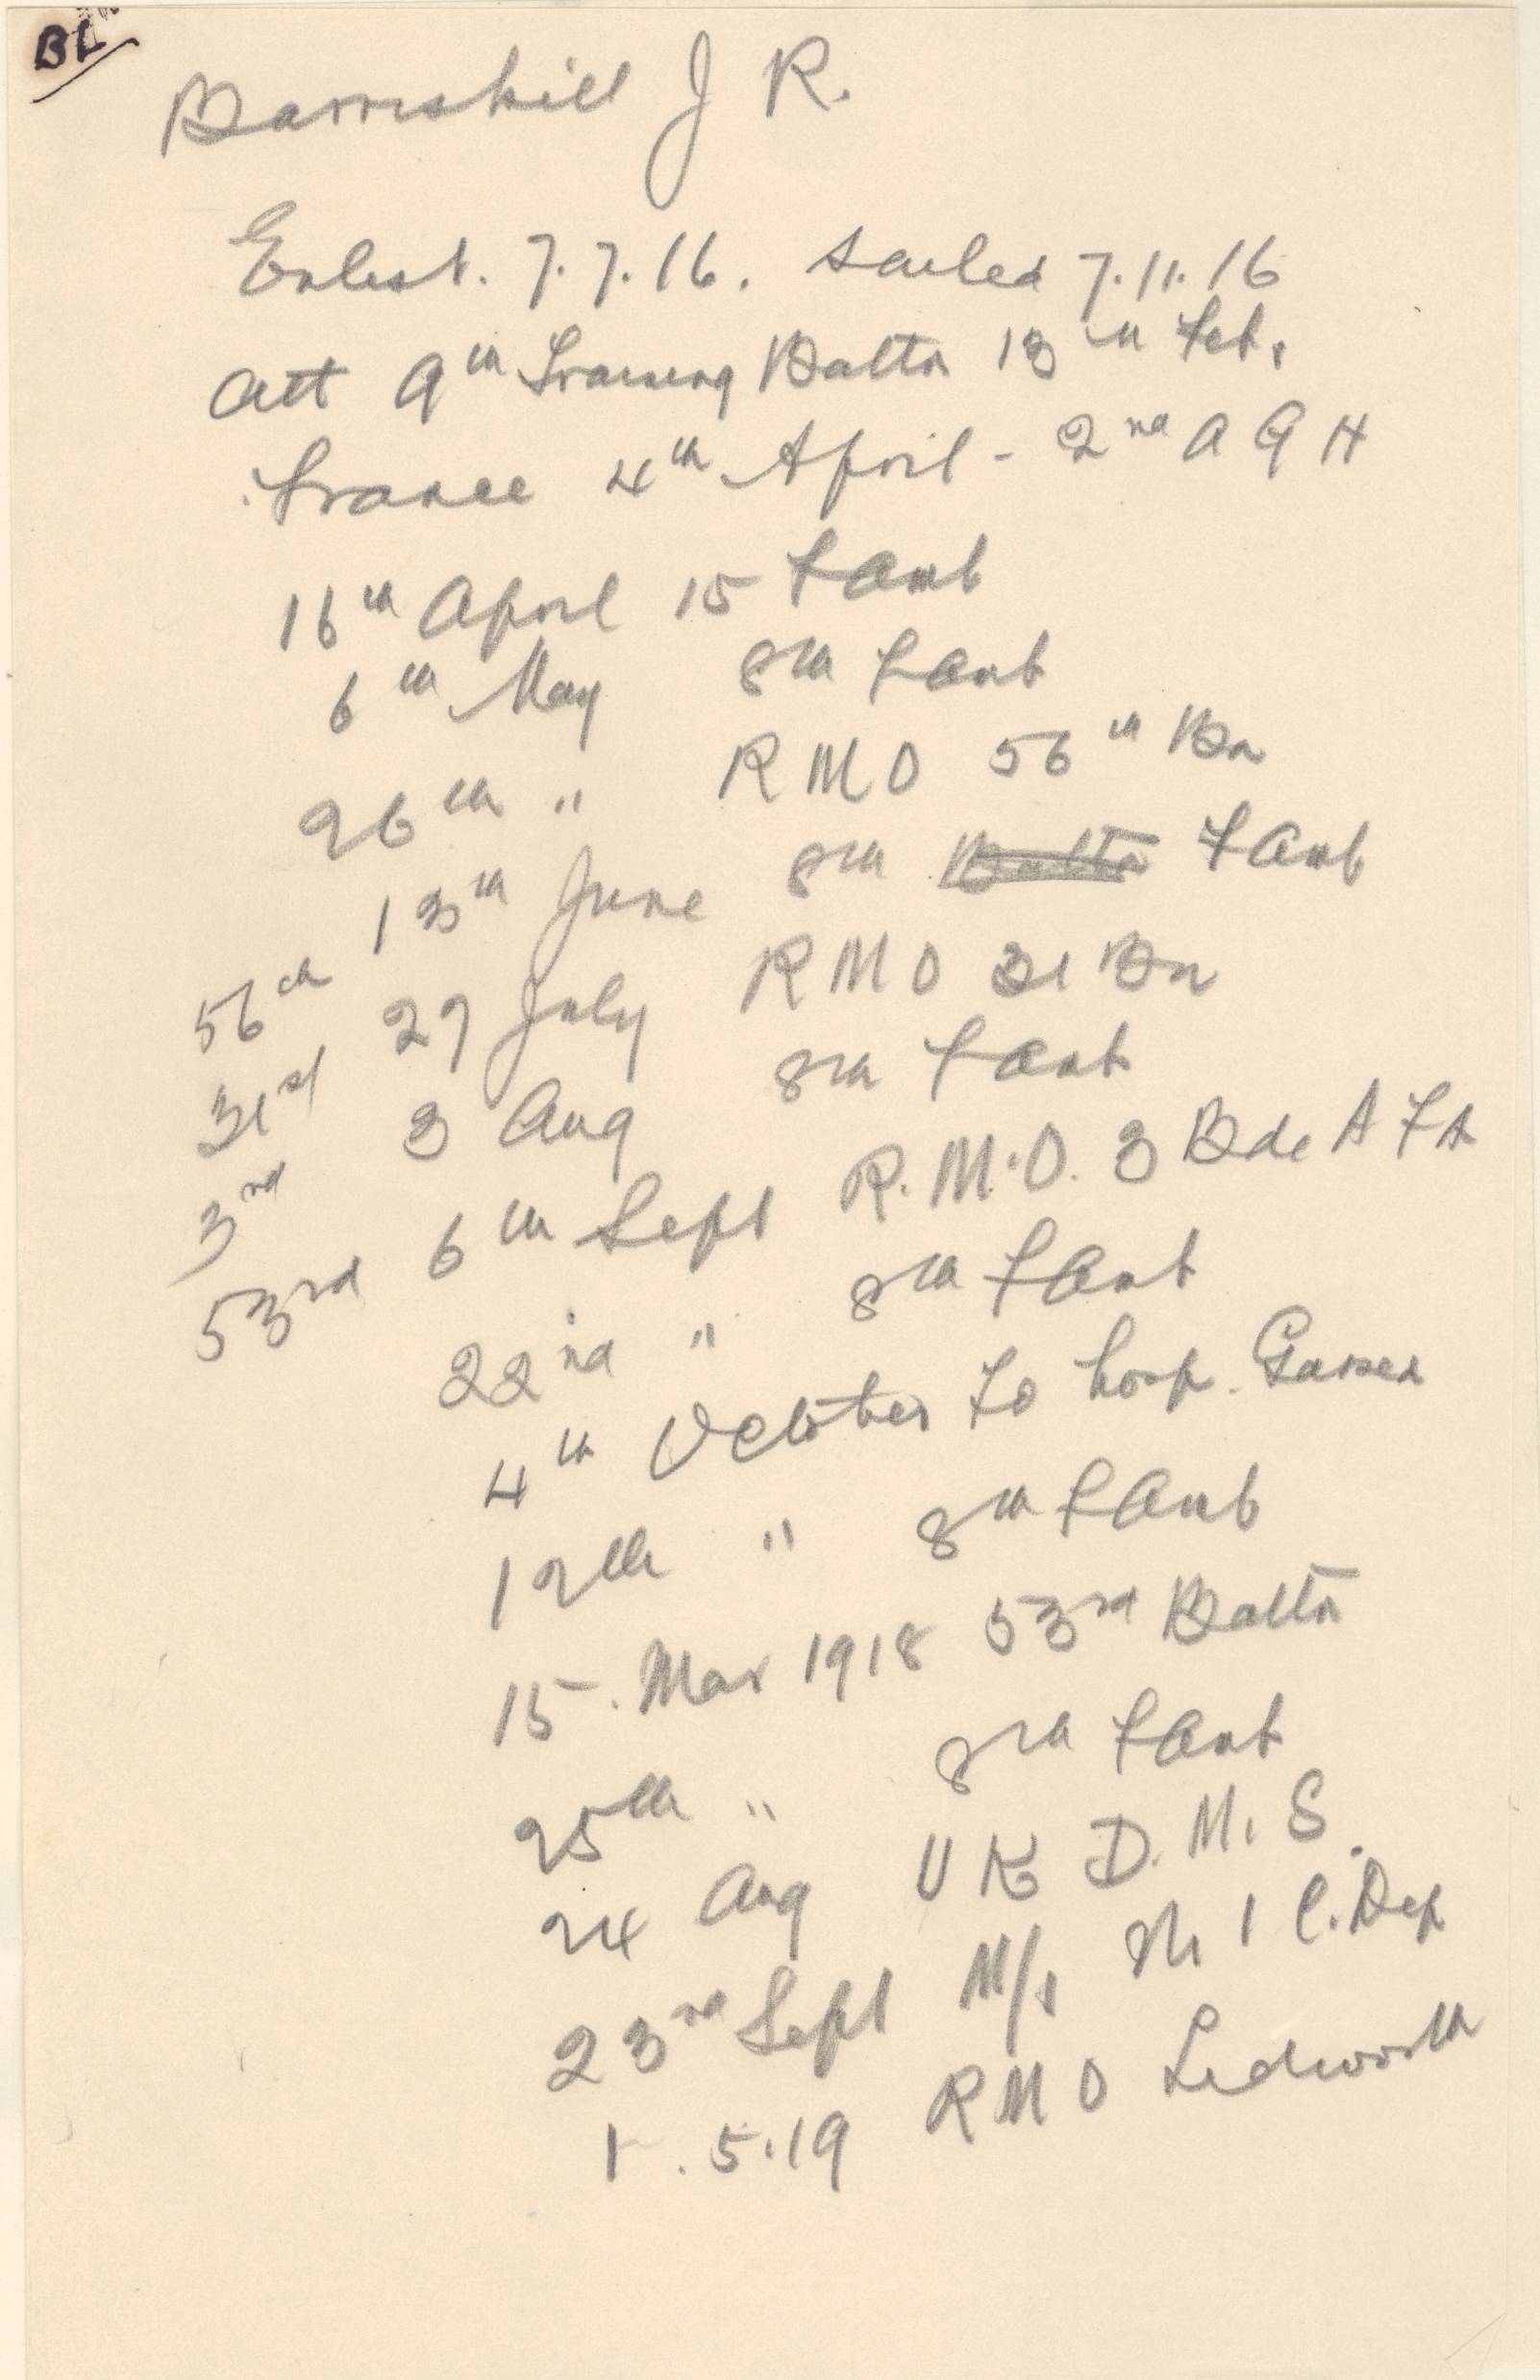 BL
J R.
Enlist. 7.7.16. Sailed 7.11.16
Att 9th Training Battn 13th Feb.
France 4th April - 2nd A G H
16th April 15 F Amb
6th May 8th F Amb
26th " R M O 56th Bn
13th June 8th Battn F Amb
56th 27 July R M O 31 Bn
31st 3 Aug 8th F Amb
3rd 6th Sept R.M.O. 3 Bde A F A
53rd 22nd " 8th F Amb
4th October to hosp. Gassed
12th " 8th F Amb
15. Mar 1918 53rd Battn
25th " 8th F Amb
24 Aug U K D. M. S.
23rd Sept M/I 1 C. Dep
1.5.19 R M O